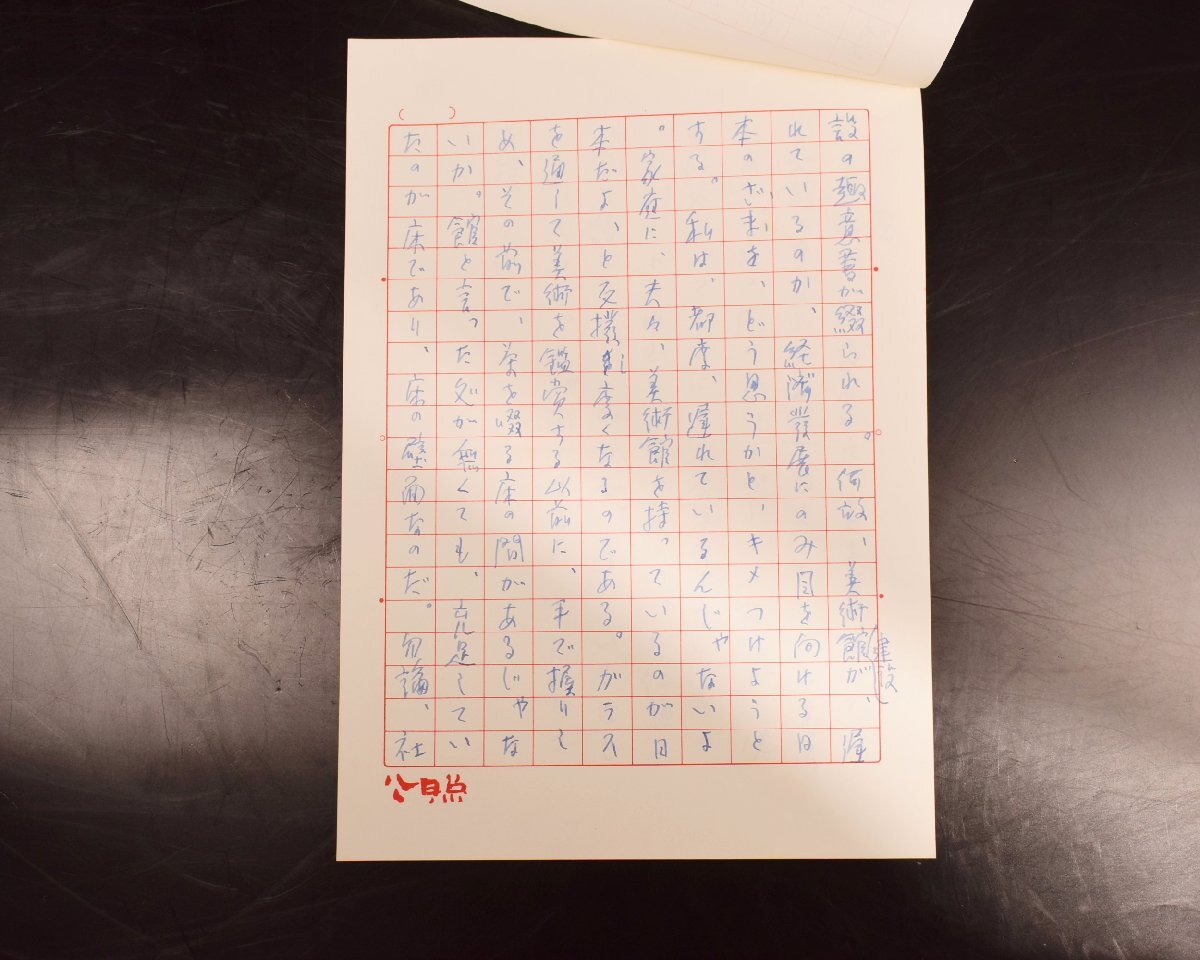 設の趣意書が綴られる。何故、美術館建設が、遅
れているのか、経済発展にのみ目を向ける日
本のざまを、どう思うかと、キメつけようと
する。私は、都度、遅れているんじゃないよ
。家庭に、夫々、美術館を持っているのが日
本だよ、と反撥し度くなるのである。ガラス
を通して美術を鑑賞する以前に、手で握りし
め、その前で、茶を啜る床の間があるじゃな
いか。館と言った処が無くても、充足してい
たのが床であり、床の壁面なのだ。勿論、社
( )